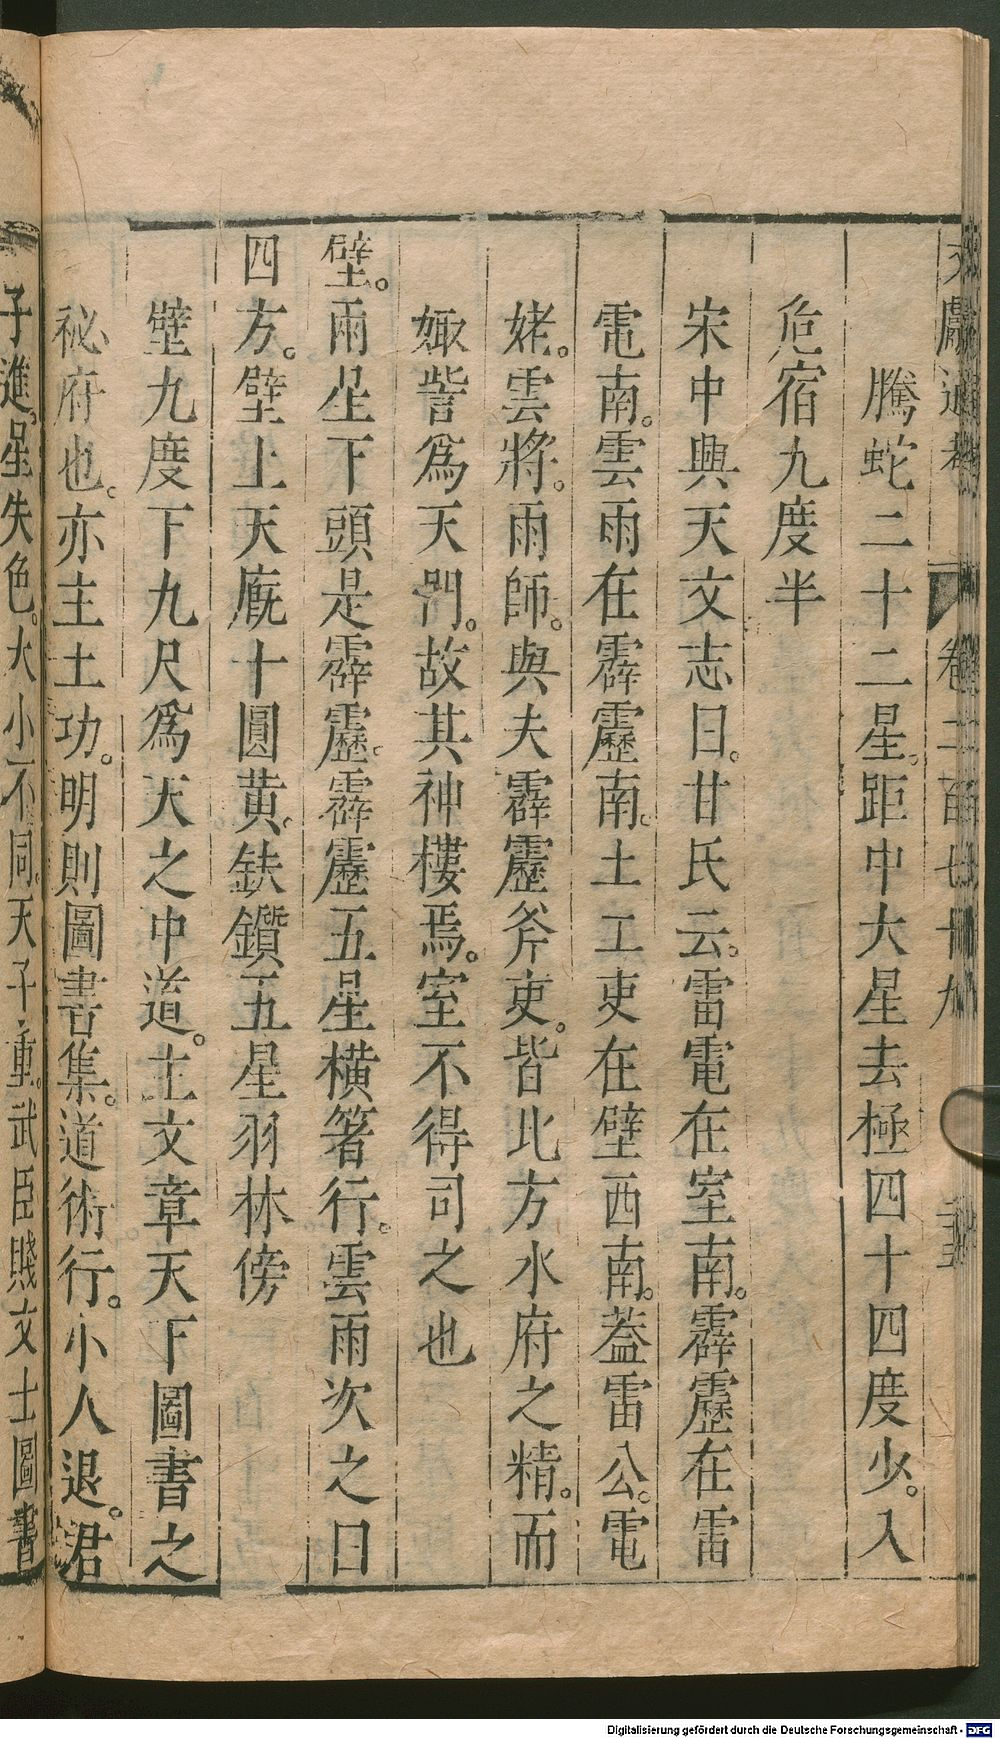 文獻通考 卷二百七十九
騰蛇二十二星。距中大星去極四十四度少。入
危宿九度半
宋中興天文志曰。甘氏云。雷電在室南。霹靂在雷
電南。雲雨在霹靂南。土工吏在壁西南。蓋雷公。電
姥。雲將。雨師。與夫霹靂斧吏。皆北方水府之精。而
娵訾爲天門。故其神樓焉。室不得司之也
壁。兩星下頭是霹靂。霹靂五星橫著行。雲雨次之曰
四方。壁上天廐十圓黄。鈇鑕五星羽林傍
壁九度下九尺爲天之中道。主文章天下圖書之
祕府也。亦主土功。明則圖書集。道術行。小人退。君
子進。星失色。大小不同。天子重。武臣賤文士圖書
Digitalisierung gefördert durch die Deutsche Forschungsgemeinschaft - DFG